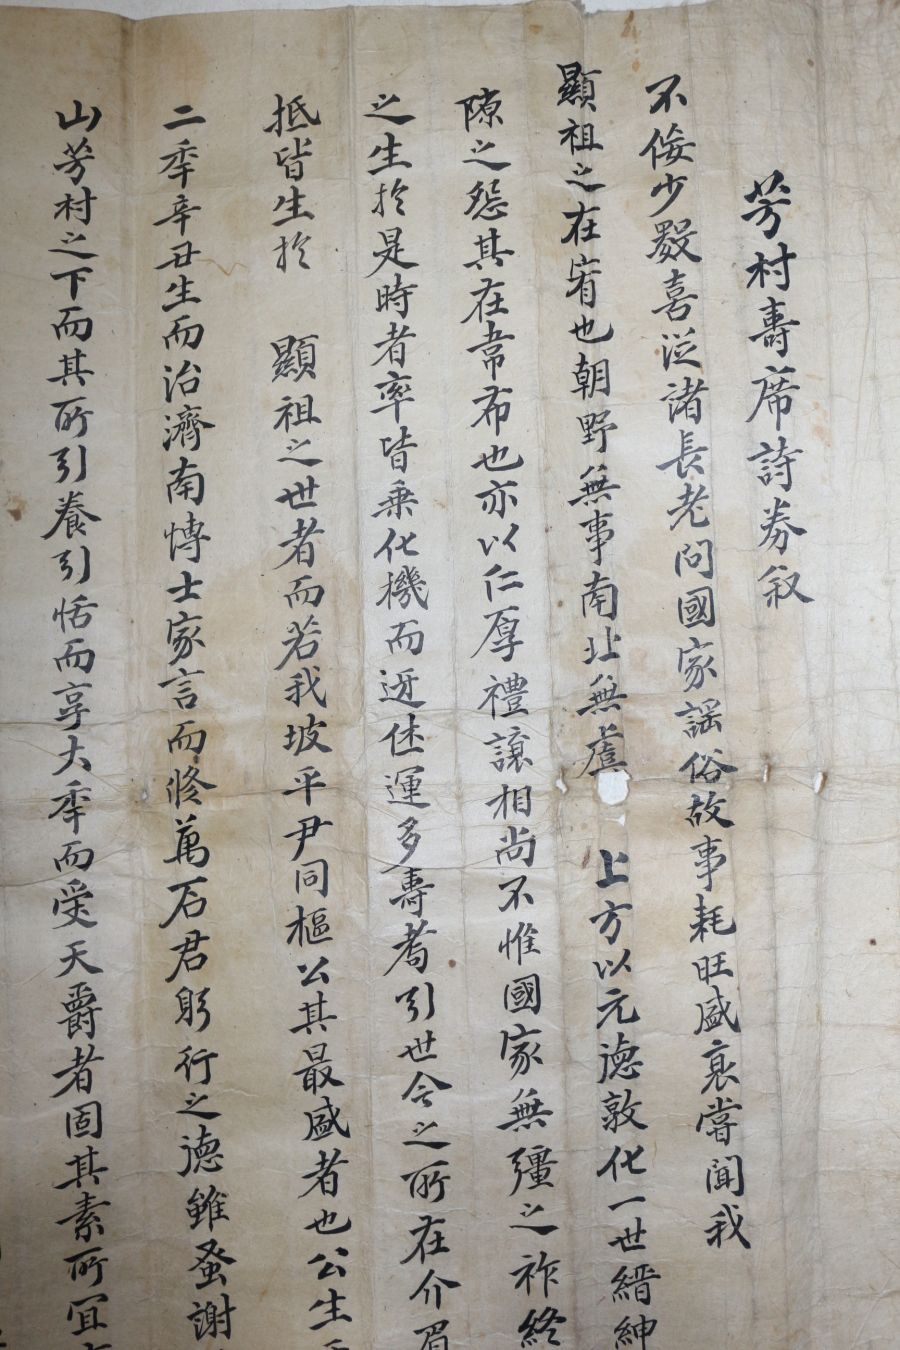 芳村壽席詩券叙
不佞少數喜從諸長老問國家謠俗故事耗旺盛衰嘗聞我
顯祖之在宥也朝野無事南北無虞 上方以元德敦化一世縉紳
隙之怨其在韋布也亦以仁厚禮讓相尚不惟國家無彊之祚終
之生於是時者率皆乘化機而迓休運多壽耇引世今之所在介眉
抵皆生於 顯祖之世者而若我坡平尹同樞公其最盛者也公生
二季辛丑生而治濟南博士家言而修萬石君躬行之德雖蚤謝
山芳村之下而其所引養引恬而享大季而受天爵者固其素所宜